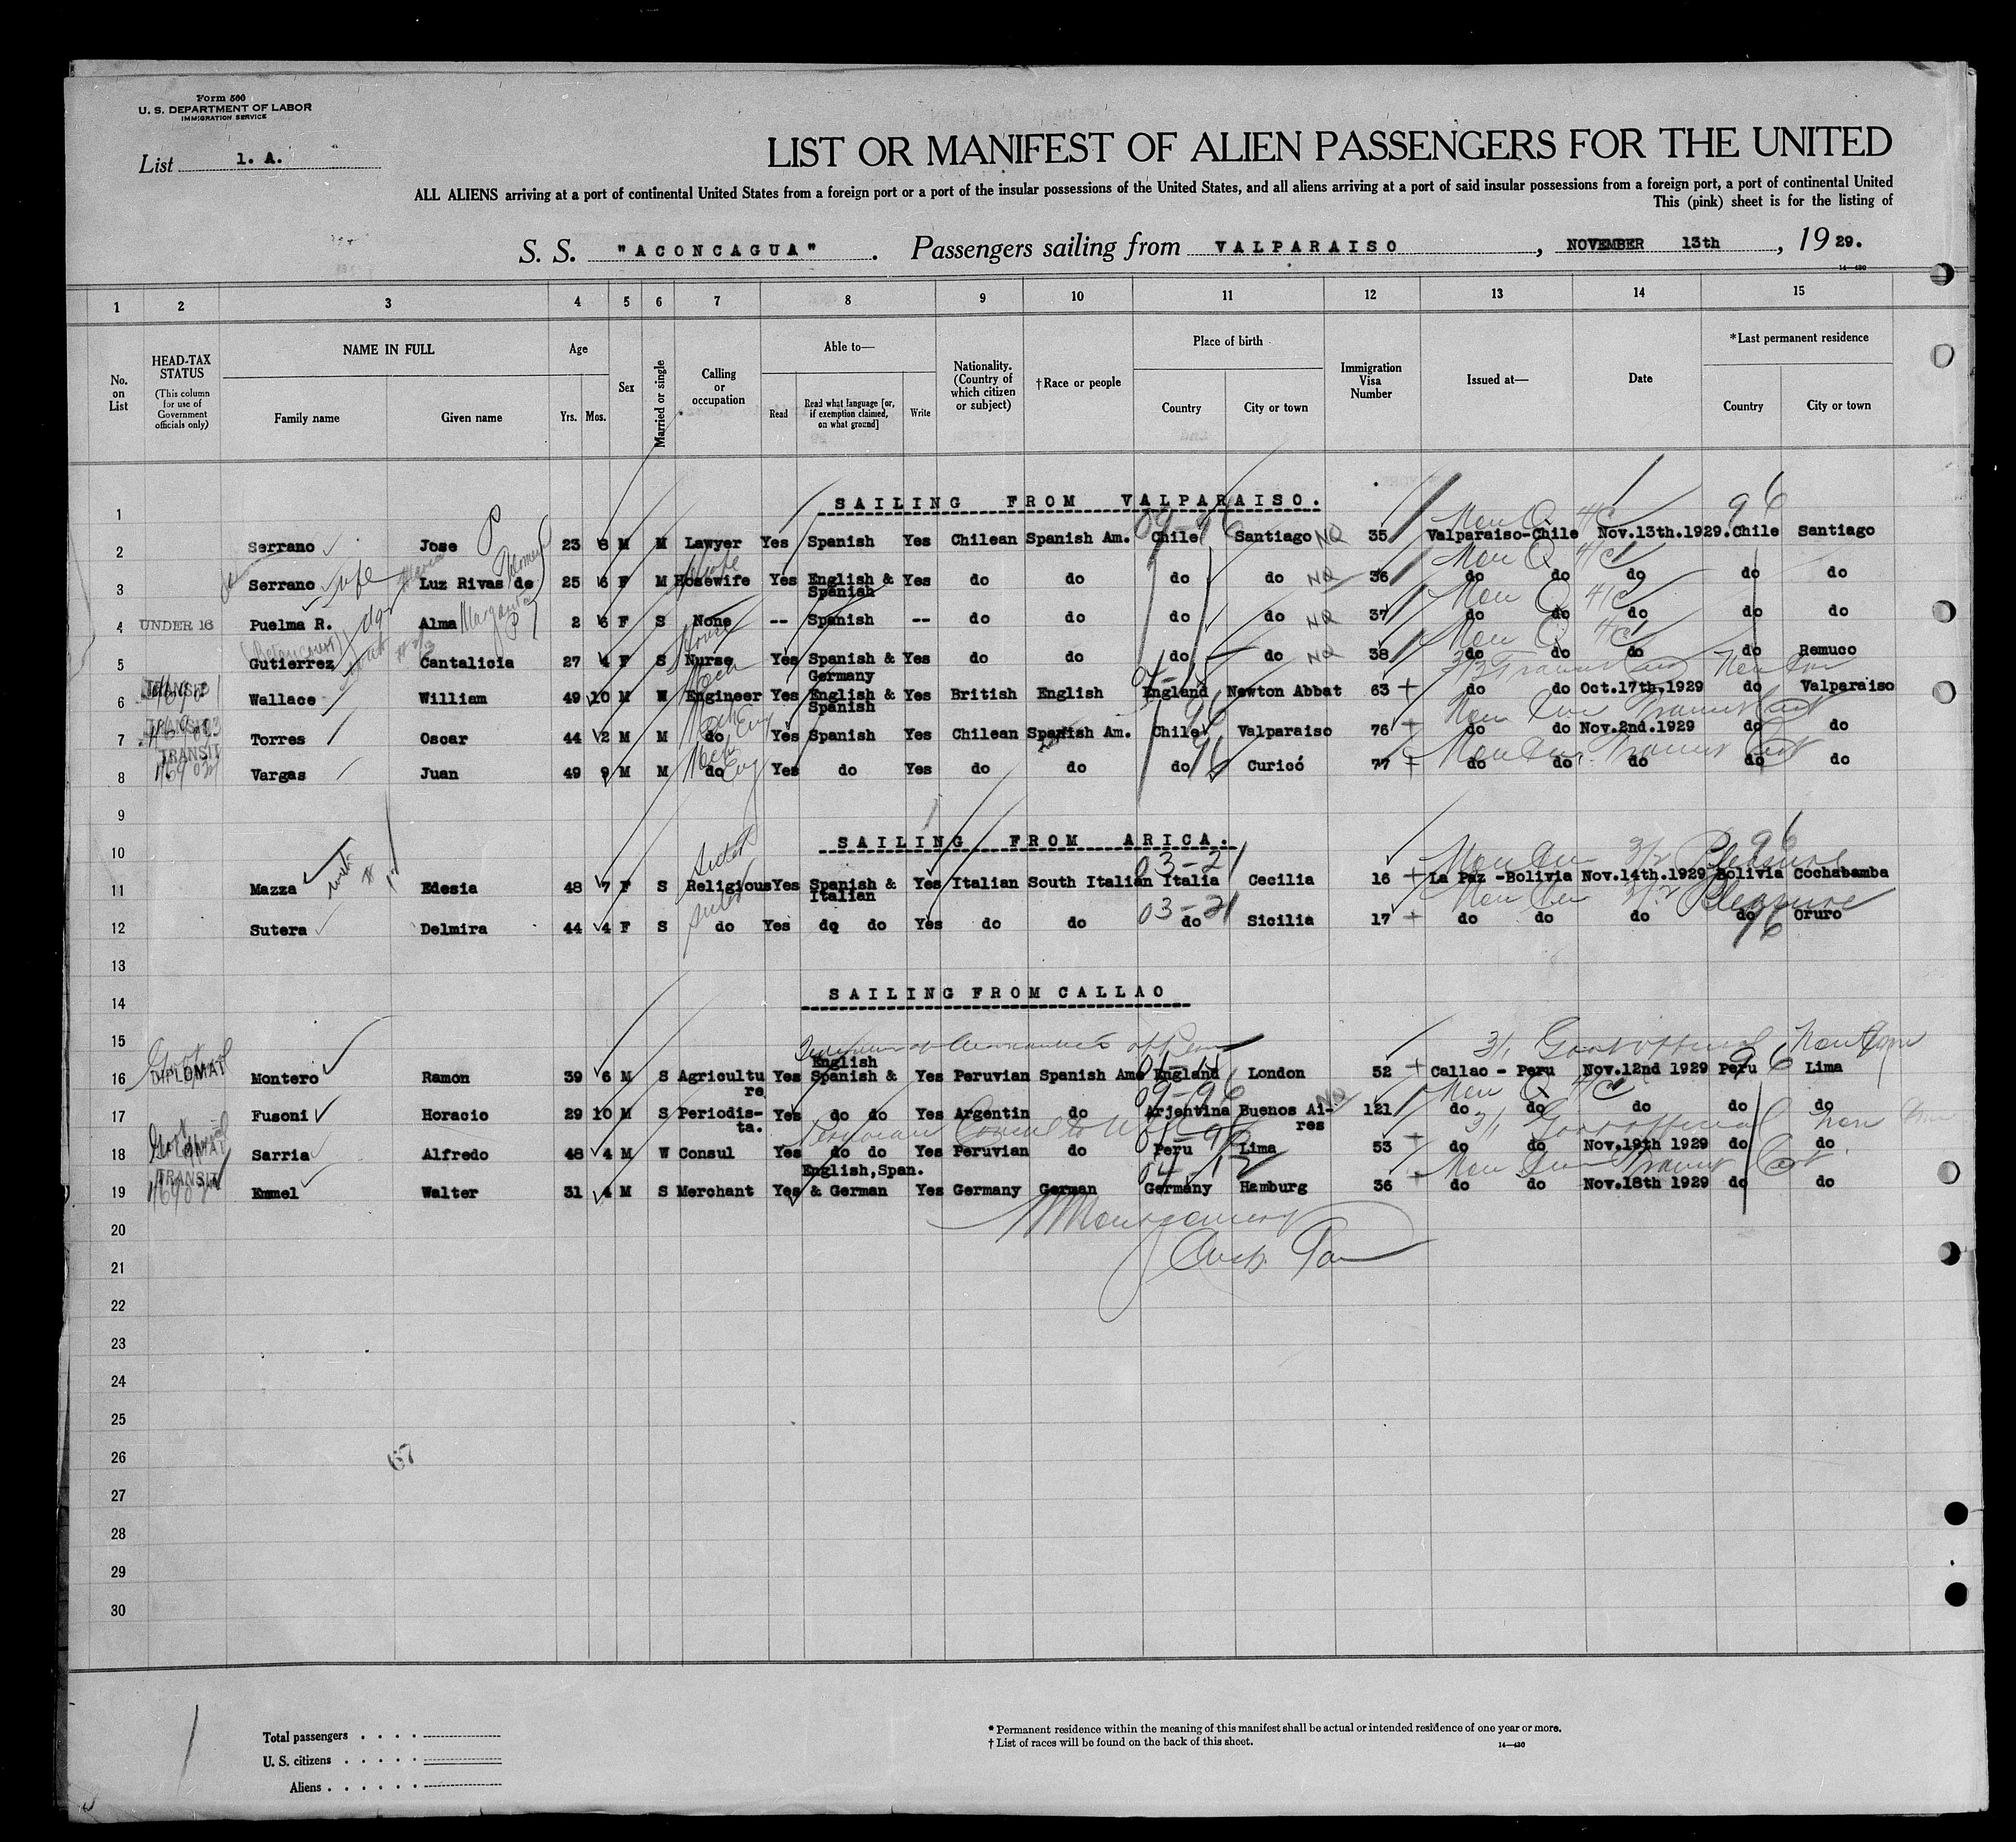 Form 500
U. S. DEPARTMENT OF LABOR
IMMIGRATION SERVICE
List 1. A.
LIST OR MANIFEST OF ALIEN PASSENGERS FOR THE UNITED
ALL ALIENS arriving at a port of continental United States from a foreign port or a port of the insular possessions of the United States, and all aliens arriving at a port of said insular possessions from a foreign port, a port of continental United
This (pink) sheet is for the listing of
S. S. "ACONCAGUA" . Passengers sailing from VALPARAISO , NOVEMBER 13th , 19 29.
14—430
1 2 3 4 5 6 7 8 9 10 11 12 13 14 15
No. on List
HEAD-TAX STATUS (This column for use of Government officials only)
NAME IN FULL
Family name Given name
Age
Yrs. Mos.
Sex
Married or single
Calling or occupation
Able to—
Read Read what language [or, if exemption claimed, on what ground] Write
Nationality. (Country of which citizen or subject)
†Race or people
Place of birth
Country City or town
Immigration Visa Number
Issued at—
Date
*Last permanent residence
Country City or town
1 SAILING FROM VALPARAISO.
09-96 Non Q 4/c 96
2 Serrano Jose P 23 8 M M Lawyer Yes Spanish Yes Chilean Spanish Am. Chile Santiago NQ 35 Valparaiso-Chile Nov.13th.1929. Chile Santiago
Non Q 4/c
3 Serrano wife Luz Rivas de 25 6 F M Hosewife Yes English & Spanish Yes do do do do NQ 36 do do do do do
Non Q 4/c
4 UNDER 16 Puelma R. dgr Alma Margarita P 2 6 F S None -- Spanish -- do do do do NQ 37 do do do do do
Non Q 4/c
5 Gutierrez Cantalicia 27 4 F S Nurse Yes Spanish & Germany Yes do do do do NQ 38 do do do do Remuco
6 TRANSIT Wallace William 49 10 M W Engineer Yes English & Spanish Yes British English England Newton Abbat 63 do do Oct.17th.1929 do Valparaiso
7 TRANSIT Torres Oscar 44 2 M M do Yes Spanish Yes Chilean Spanish Am. Chile Valparaiso 76 do do Nov.2nd.1929 do do
8 TRANSIT Vargas Juan 49 9 M M do Yes do Yes do do do Curicó 77 do do do do do
9
10 SAILING FROM ARICA.
Sister 03-21 3/2 Pleasure 96
11 Mazza Edesia 48 7 F S Religious Yes Spanish & Italian Yes Italian South Italian Italia Cecilia 16 La Paz -Bolivia Nov.14th.1929 Bolivia Cochabamba
Sister 03-21 3/2 Pleasure
12 Sutera Delmira 44 4 F S do Yes do do Yes do do do Sicilia 17 do do do do Oruro
96
13
14 SAILING FROM CALLAO
15
3/1 Govt official
16 DIPLOMAT Montero Ramon 39 6 M S Agriculture Yes English Spanish & Yes Peruvian Spanish Ame England London 52 Callao - Peru Nov.12nd 1929 Peru 96 Lima
09-96 Non Q 4/c
17 Fusoni Horacio 29 10 M S Periodis-ta. Yes do do Yes Argentin do Arjentina Buenos Ai-res 121 do do do do do
Peruvian Consul to 3/1 Govt official
18 DIPLOMAT Sarria Alfredo 48 4 M W Consul Yes do do Yes Peruvian do Peru Lima 53 do do Nov.19th 1929 do do
19 TRANSIT Emmel Walter 31 4 M S Merchant Yes English,Span. & German Yes Germany German Germany Hamburg 36 do do Nov.18th 1929 do do
20
21
22
23
24
25
26
67
27
28
29
30
Total passengers
U. S. citizens
Aliens
* Permanent residence within the meaning of this manifest shall be actual or intended residence of one year or more.
† List of races will be found on the back of this sheet.
14—430